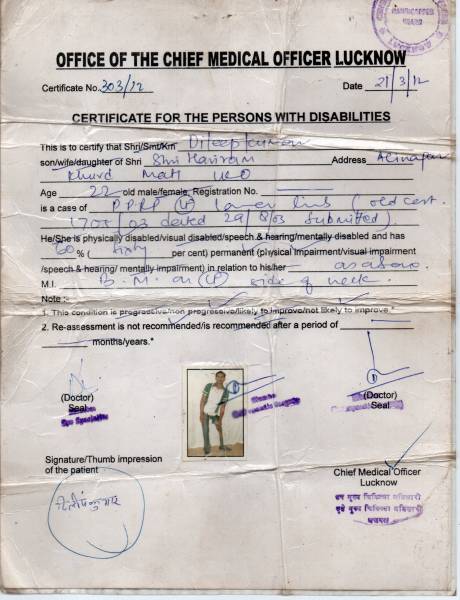 HANDICAPPED
BOARD
OFFICE OF THE CHIEF MEDICAL OFFICER LUCKNOW
Certificate No. 303/12 Date 21/3/12
CERTIFICATE FOR THE PERSONS WITH DISABILITIES
This is to certify that Shri/Smt/Km Dileep Kumar
son/wife/daughter of Shri Shri Hariram Address Alinagar
Khurd Mati LKO
Age 22 old male/female, Registration No.
is a case of P.P.R.P (L) Lower limb (old cert.
1705/03 dated 29/8/03 submitted).
He/She is physically disabled/visual disabled/speech & hearing/mentally disabled and has
60 % ( Sixty per cent) permanent (physical impairment/visual impairment
/speech & hearing/ mentally impairment) in relation to his/her as above
M.I. B.M. on (L) side of neck.
Note :
1. This condition is progressive/non progressive/likely to improve/not likely to improve.*
2. Re-assessment is not recommended/is recommended after a period of
months/years.*
(Doctor) (Doctor)
Seal Seal
Eye Specialist
Signature/Thumb impression
of the patient
Chief Medical Officer
Lucknow
दिलीप कुमार
उप मुख्य चिकित्सा अधिकारी
कृते मुख्य चिकित्सा अधिकारी
लखनऊ